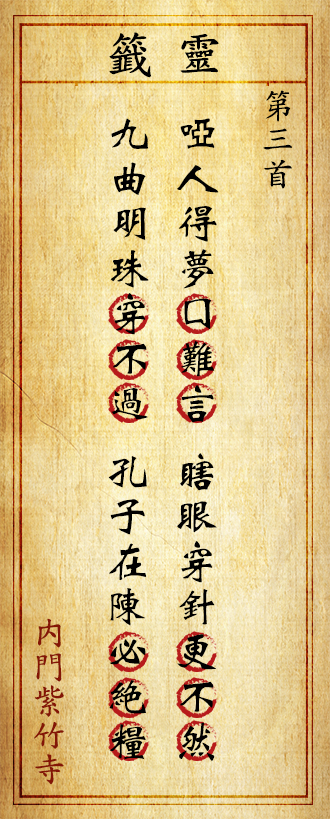 靈籤
第三首
啞人得夢口難言
瞎眼穿針更不然
九曲明珠穿不過
孔子在陳必絕糧
內門紫竹寺